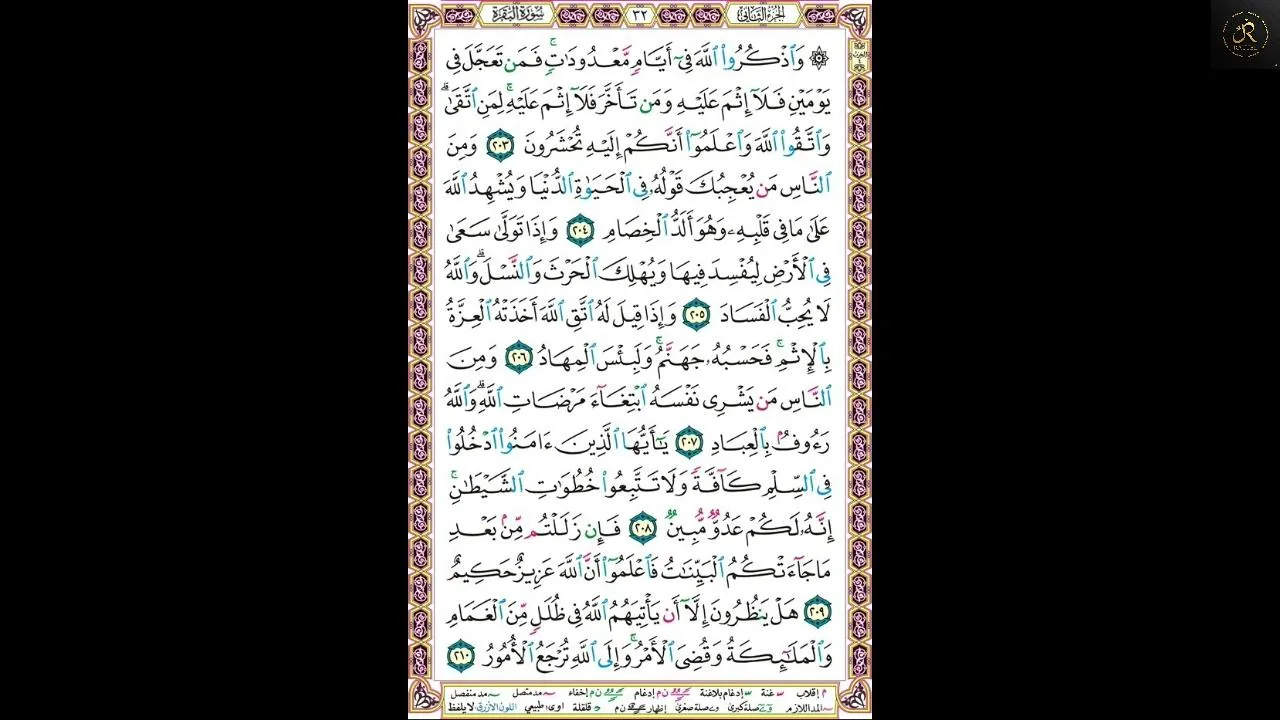 سُورَةُ البَقَرَةِ ٣٢ الجُزْءُ الثَّانِي
۞ وَٱذْكُرُوا۟ ٱللَّهَ فِىٓ أَيَّامٍ مَّعْدُودَٰتٍ ۚ فَمَن تَعَجَّلَ فِى
يَوْمَيْنِ فَلَآ إِثْمَ عَلَيْهِ وَمَن تَأَخَّرَ فَلَآ إِثْمَ عَلَيْهِ ۚ لِمَنِ ٱتَّقَىٰ ۗ
وَٱتَّقُوا۟ ٱللَّهَ وَٱعْلَمُوٓا۟ أَنَّكُمْ إِلَيْهِ تُحْشَرُونَ ٢٠٣ وَمِنَ
ٱلنَّاسِ مَن يُعْجِبُكَ قَوْلُهُۥ فِى ٱلْحَيَوٰةِ ٱلدُّنْيَا وَيُشْهِدُ ٱللَّهَ
عَلَىٰ مَا فِى قَلْبِهِۦ وَهُوَ أَلَدُّ ٱلْخِصَامِ ٢٠٤ وَإِذَا تَوَلَّىٰ سَعَىٰ
فِى ٱلْأَرْضِ لِيُفْسِدَ فِيهَا وَيُهْلِكَ ٱلْحَرْثَ وَٱلنَّسْلَ ۗ وَٱللَّهُ
لَا يُحِبُّ ٱلْفَسَادَ ٢٠٥ وَإِذَا قِيلَ لَهُ ٱتَّقِ ٱللَّهَ أَخَذَتْهُ ٱلْعِزَّةُ
بِٱلْإِثْمِ ۚ فَحَسْبُهُۥ جَهَنَّمُ ۚ وَلَبِئْسَ ٱلْمِهَادُ ٢٠٦ وَمِنَ
ٱلنَّاسِ مَن يَشْرِى نَفْسَهُ ٱبْتِغَآءَ مَرْضَاتِ ٱللَّهِ ۗ وَٱللَّهُ
رَءُوفٌۢ بِٱلْعِبَادِ ٢٠٧ يَٰٓأَيُّهَا ٱلَّذِينَ ءَامَنُوا۟ ٱدْخُلُوا۟
فِى ٱلسِّلْمِ كَآفَّةً وَلَا تَتَّبِعُوا۟ خُطُوَٰتِ ٱلشَّيْطَٰنِ ۚ
إِنَّهُۥ لَكُمْ عَدُوٌّ مُّبِينٌ ٢٠٨ فَإِن زَلَلْتُم مِّنۢ بَعْدِ
مَا جَآءَتْكُمُ ٱلْبَيِّنَٰتُ فَٱعْلَمُوٓا۟ أَنَّ ٱللَّهَ عَزِيزٌ حَكِيمٌ
٢٠٩ هَلْ يَنظُرُونَ إِلَّآ أَن يَأْتِيَهُمُ ٱللَّهُ فِى ظُلَلٍ مِّنَ ٱلْغَمَامِ
وَٱلْمَلَٰٓئِكَةُ وَقُضِىَ ٱلْأَمْرُ ۚ وَإِلَى ٱللَّهِ تُرْجَعُ ٱلْأُمُورُ ٢١٠
م إقلاب غنة إدغام بلاغنة ن م إدغام ن م إخفاء مد متصل مد منفصل
المد اللازم صلة كبرى صلة صغرى إظهار ن م قلقلة طبيعي اللون الأزرق لا يلفظ